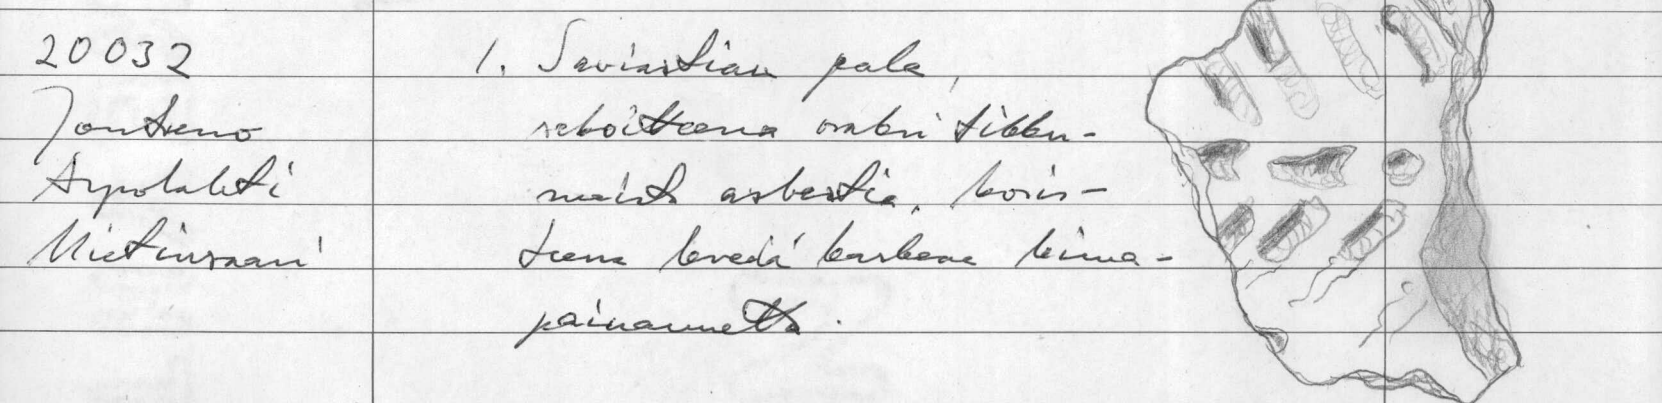 20032
Joutseno
Arpolahti
Mietinsaari
1. Saviastian pala,
sekoitteena orsakivitikku-
maista asbestia, koris-
teena leveää karkeaa kuma-
painannetta.